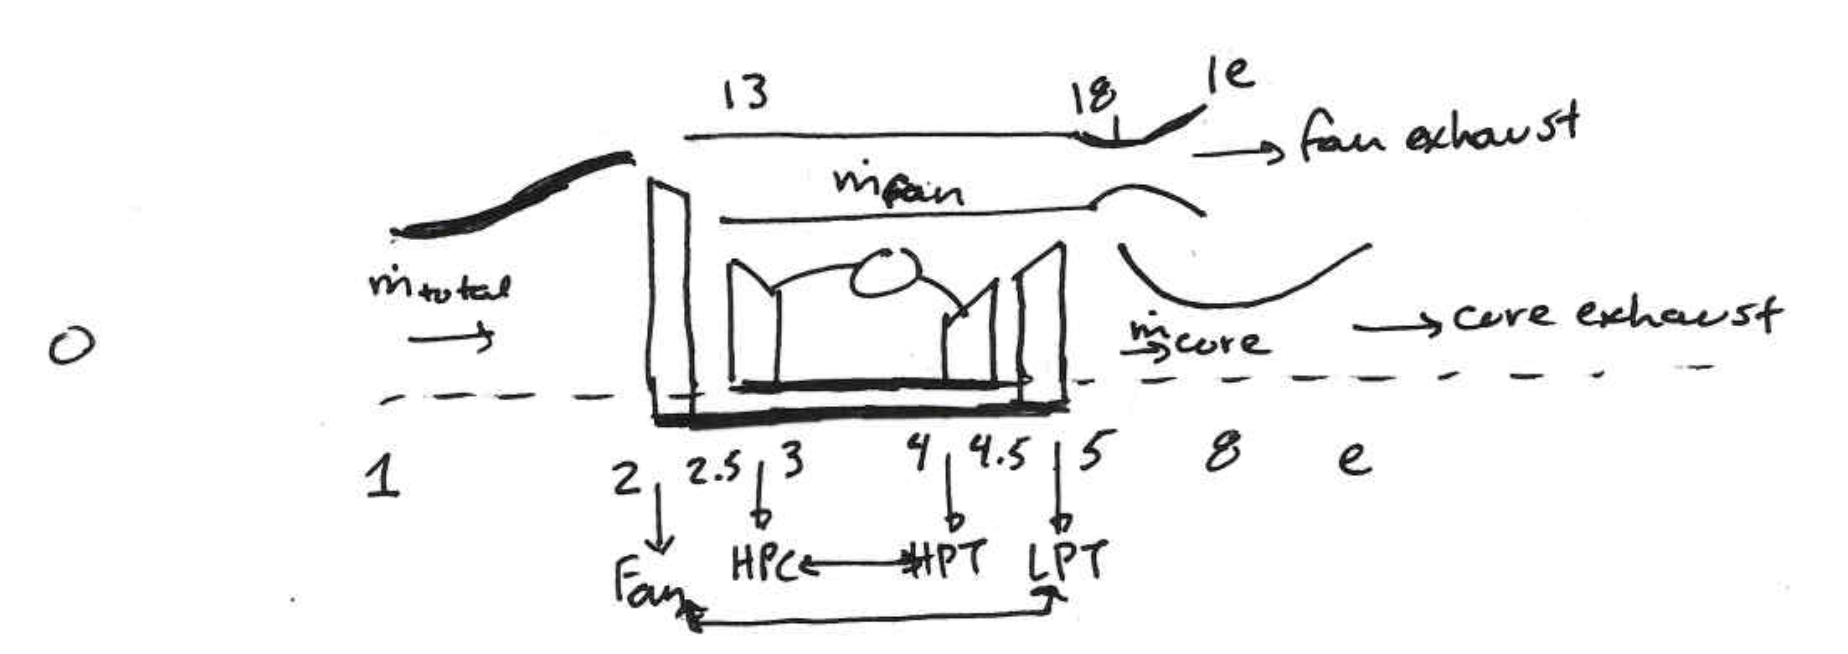 13 18 1e
fan exhaust
ṁfan
ṁtotal
0
ṁcore
core exhaust
1 2 2.5 3 4 4.5 5 8 e
Fan HPC HPT LPT